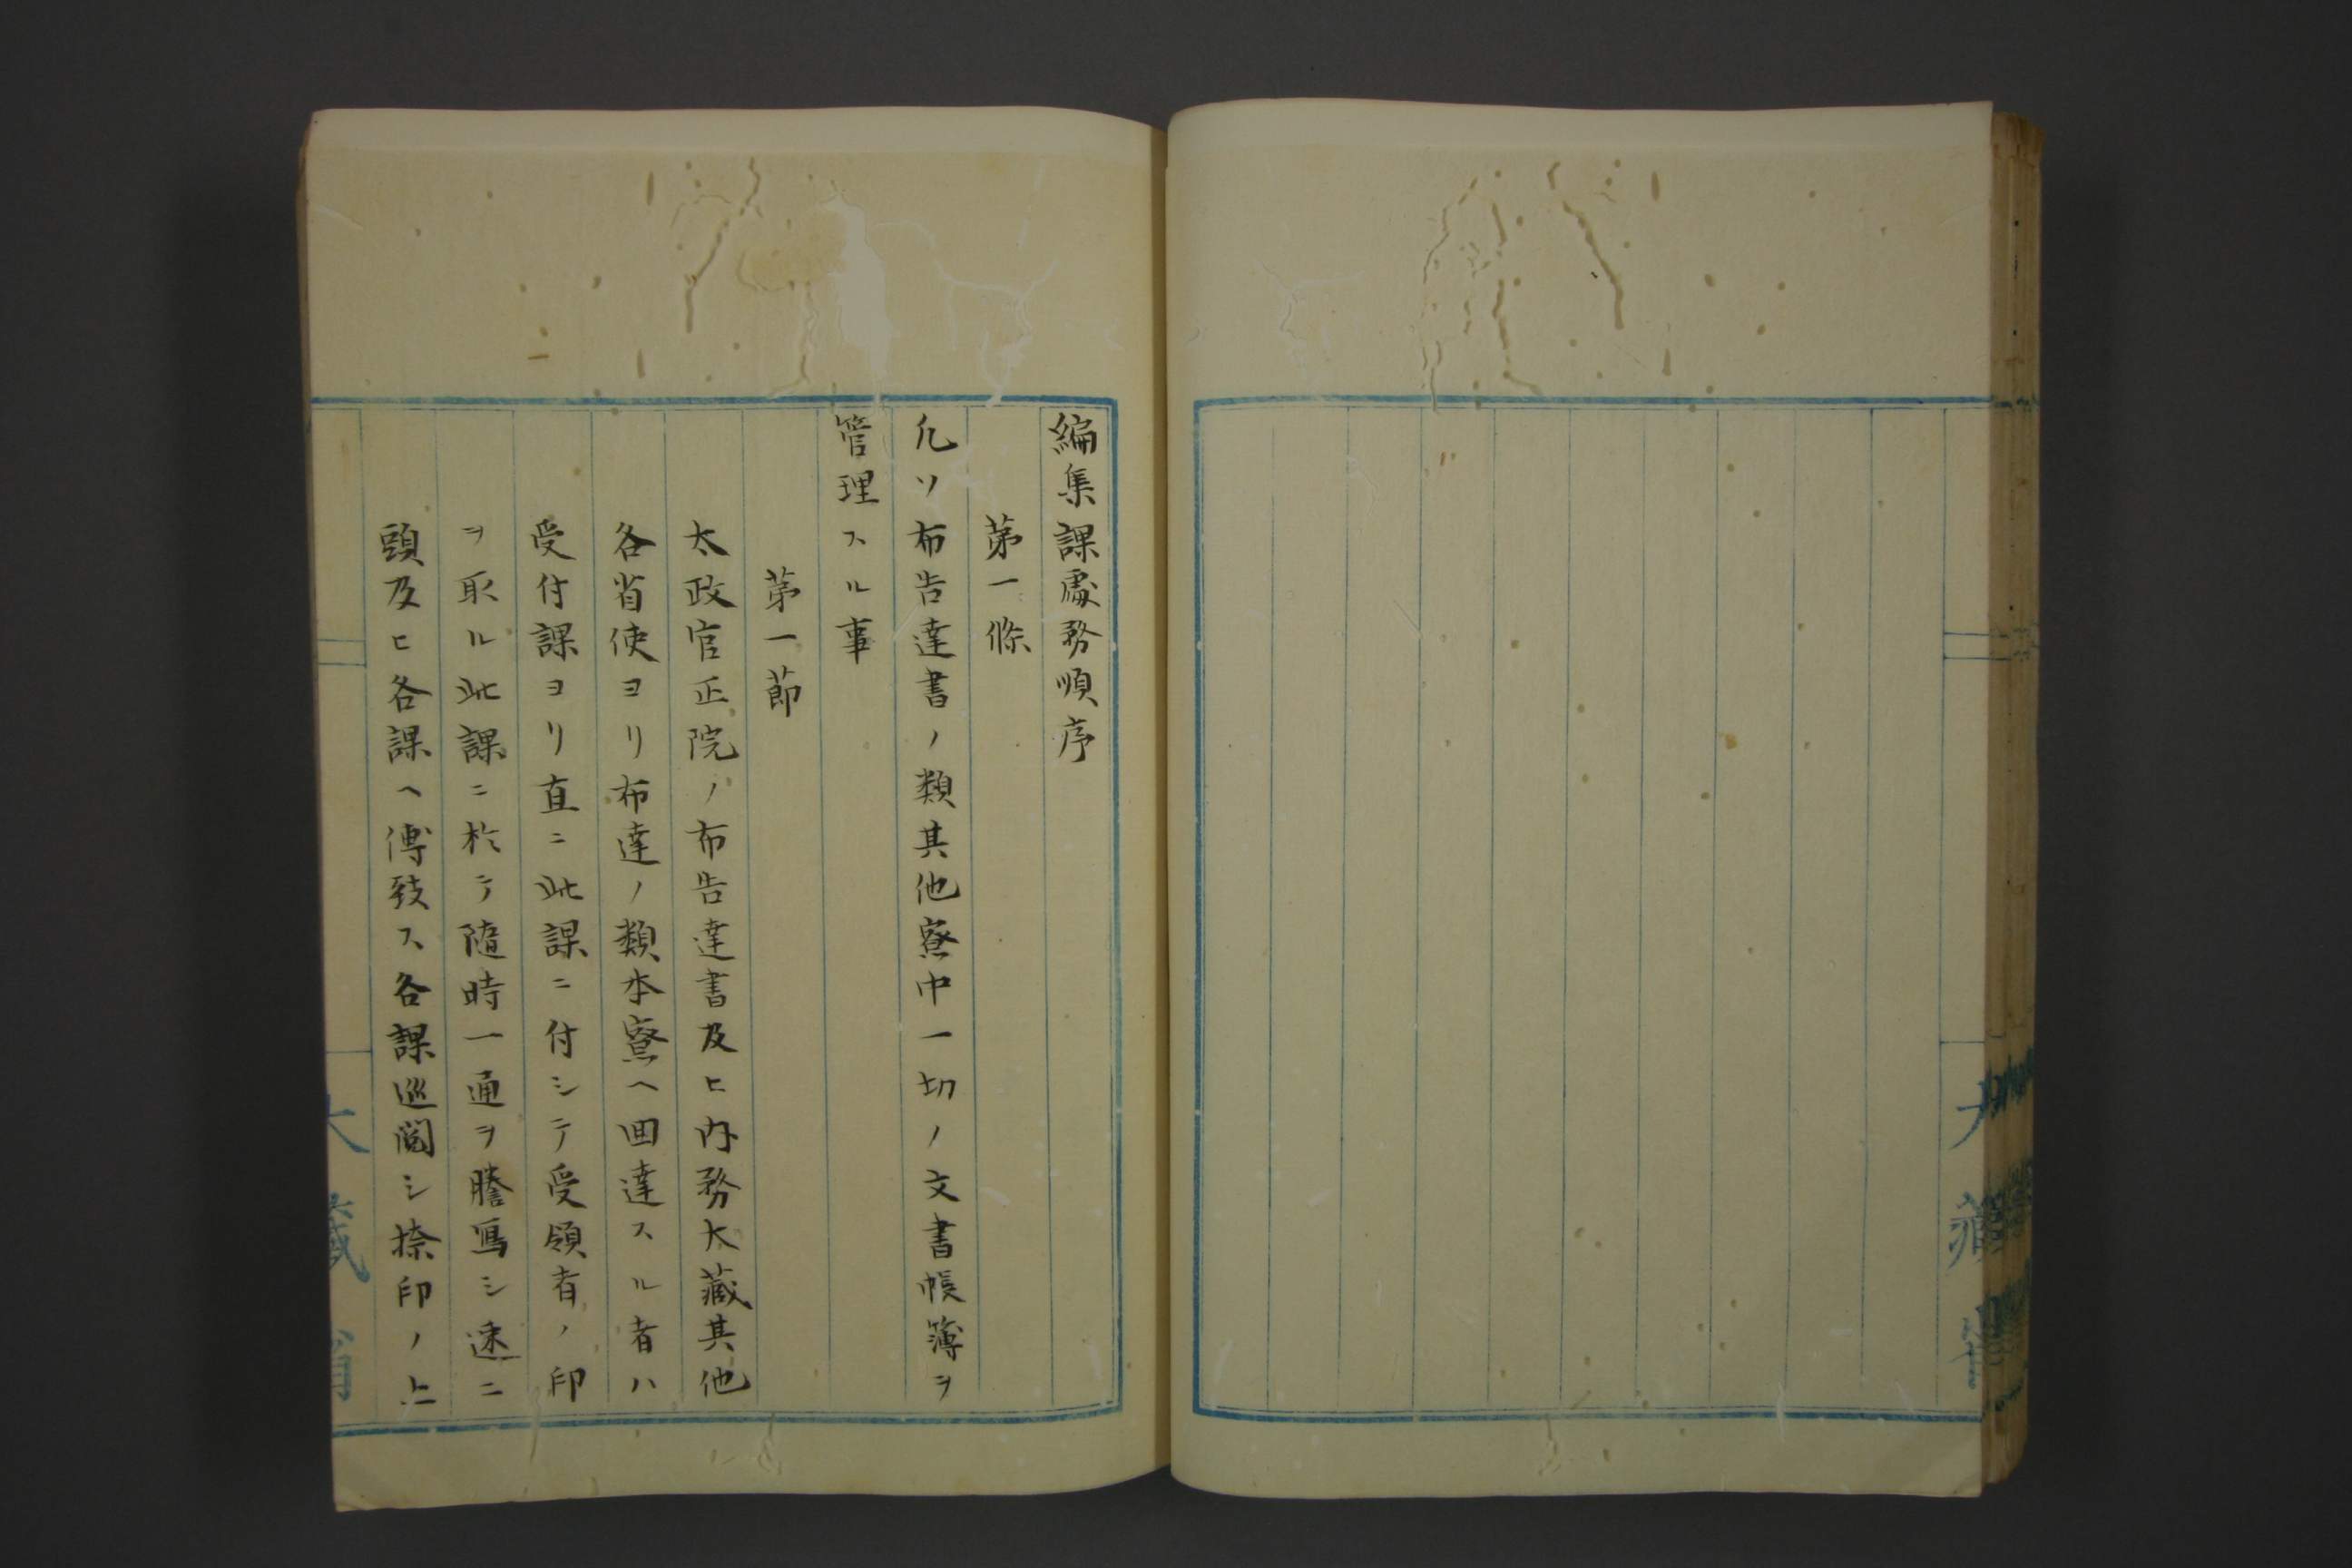 編集課處務順序
第一條
凡ソ布告達書ノ類其他寮中一切ノ文書帳簿ヲ
管理スル事
第一節
太政官正院ノ布告達書及ヒ内務大藏其他
各省使ヨリ布達ノ類本寮ヘ回達スル者ハ
受付課ヨリ直ニ此課ニ付シテ受領者ノ印
ヲ取ル此課ニ於テ隨時一通ヲ謄寫シ速ニ
頭及ヒ各課ヘ傳致ス各課巡閲シ捺印ノ上
大藏省